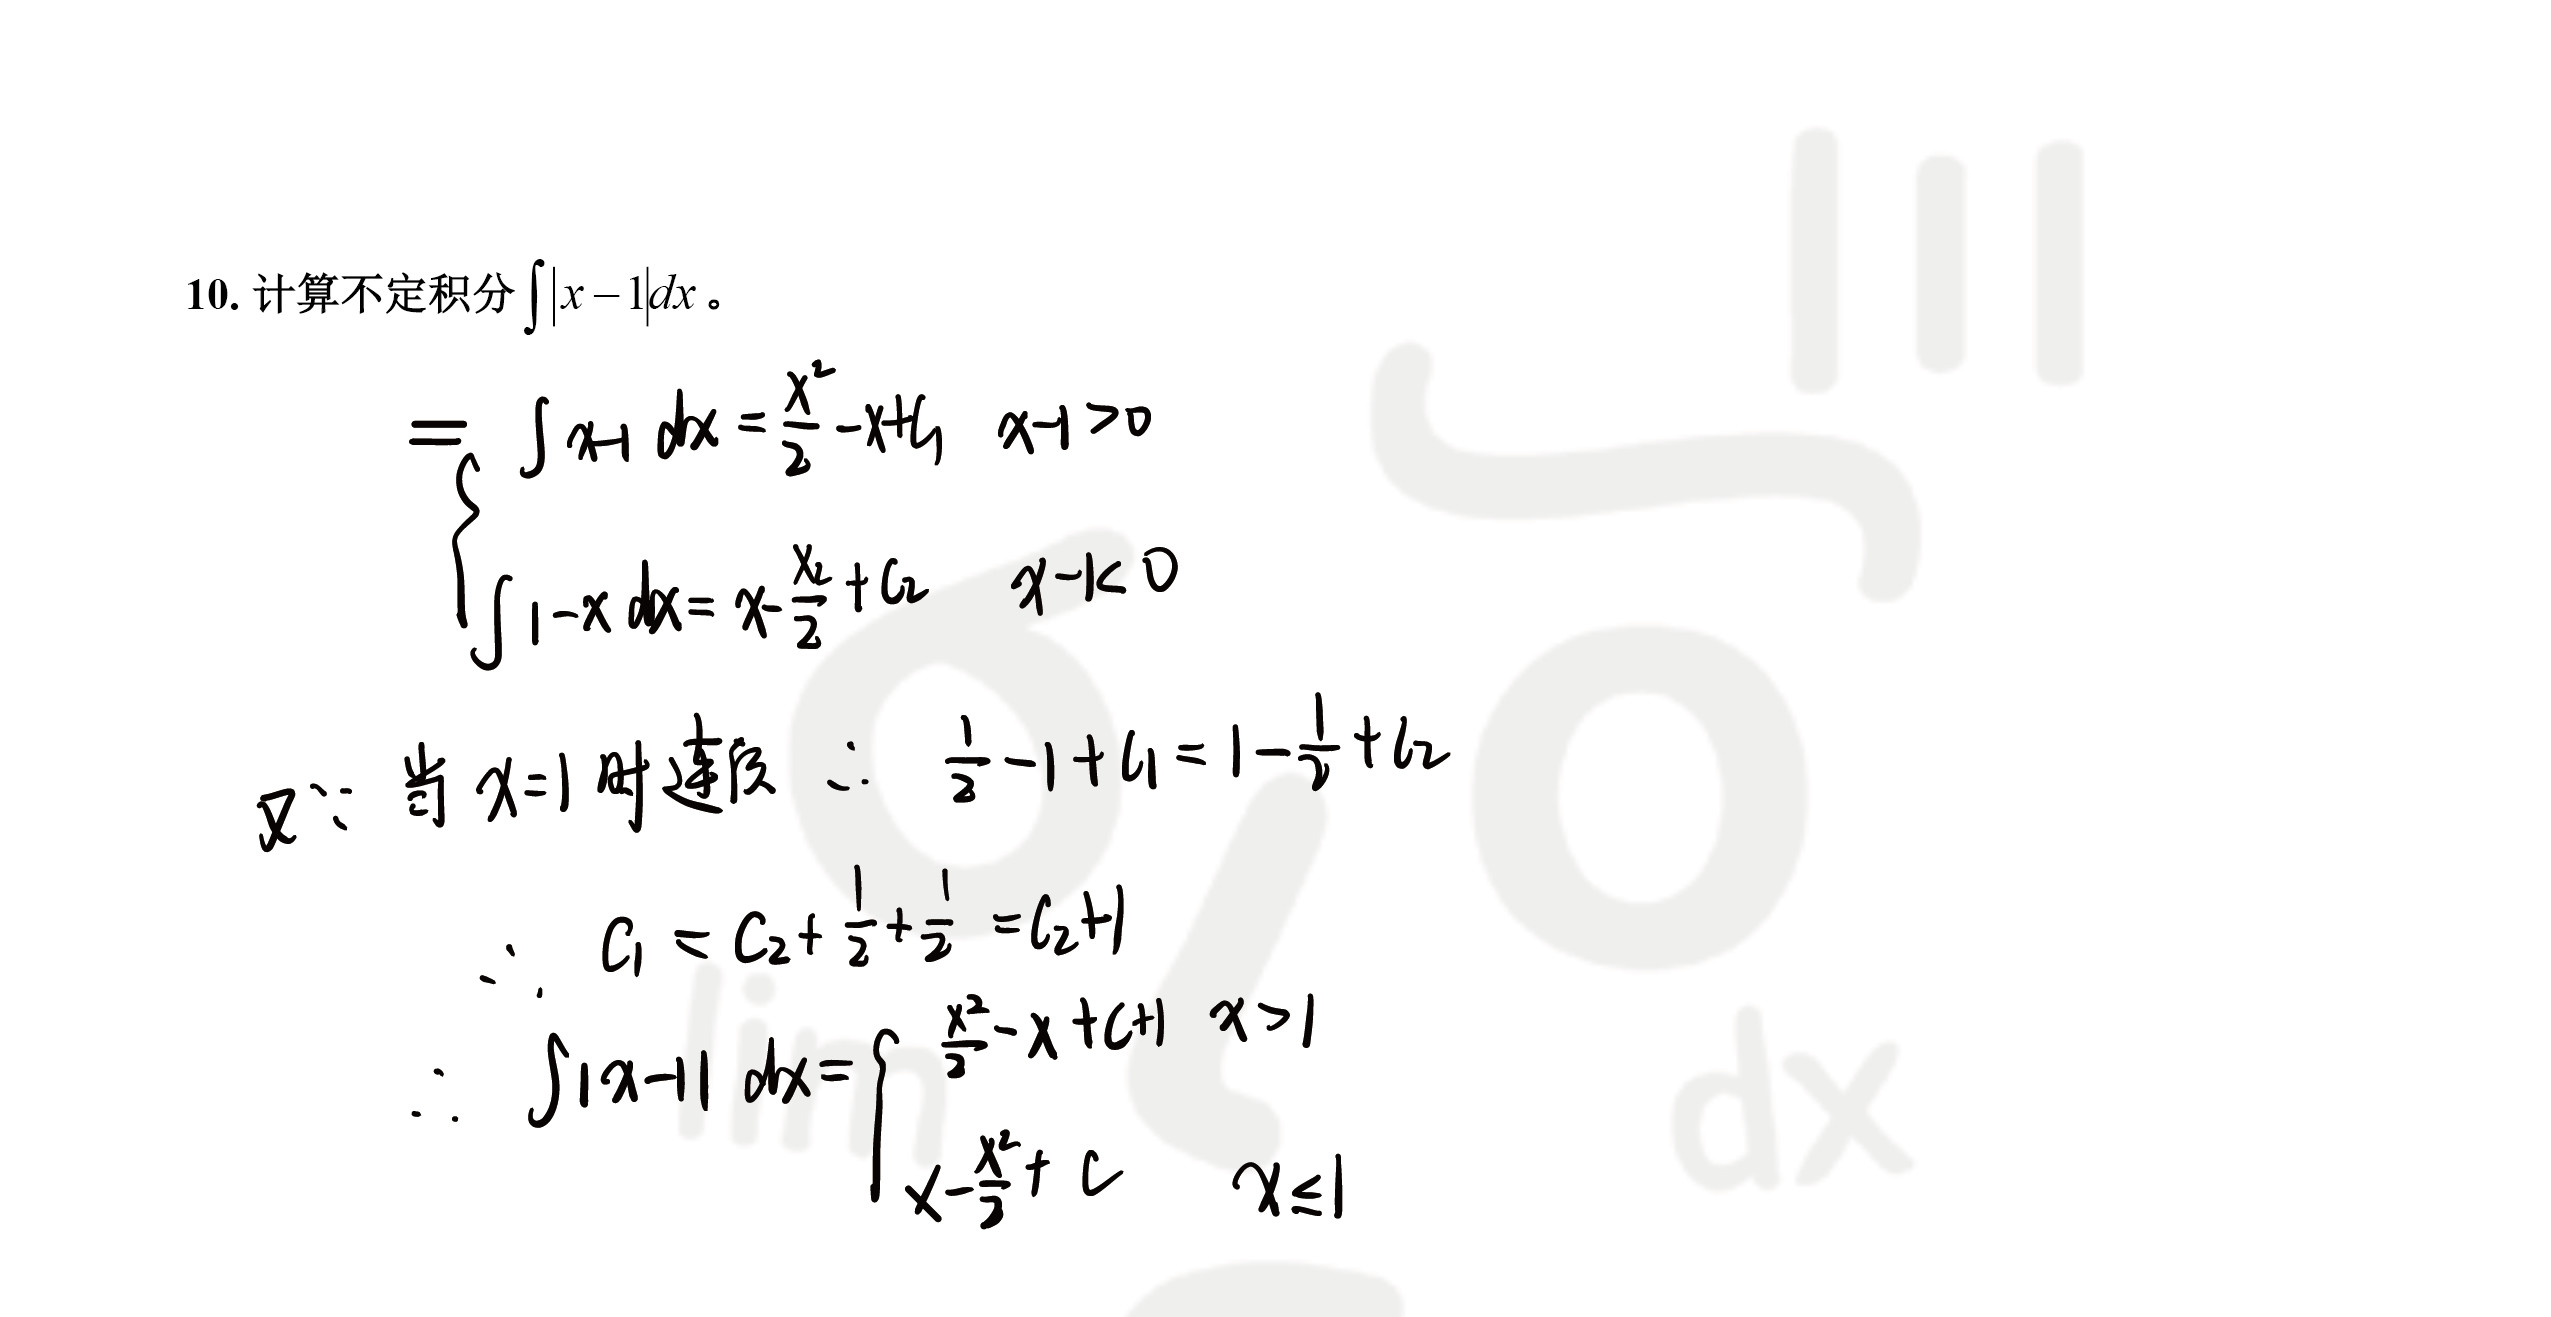 10. 计算不定积分∫|x−1|dx。
= { ∫ x-1 dx = x²/2 -x+C₁ x-1>0
∫ 1-x dx = x- x²/2 +C₂ x-1<0
又∵ 当 x=1 时连续 ∴ 1/2 -1+C₁ = 1- 1/2 +C₂
∴ C₁ = C₂+ 1/2 + 1/2 =C₂+1
∴ ∫|x-1| dx= { x²/2 -x+C+1 x>1
x- x²/2 + C x≤1
lim
dx